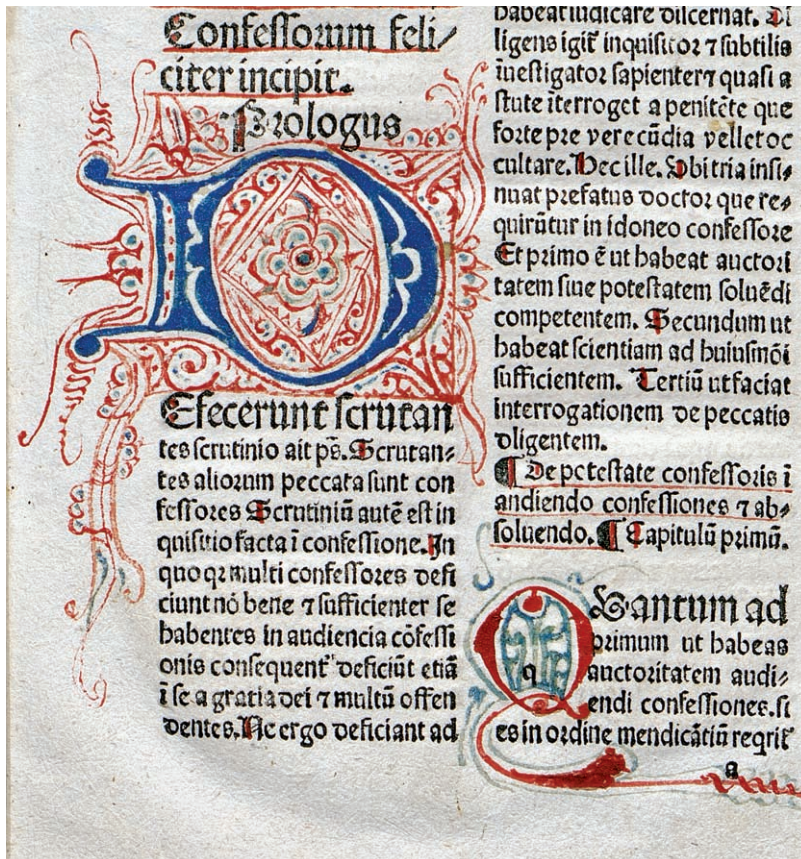 Confessorum feli/
citer incipit.
Prologus
D
Efecerunt scrutan
tes scrutinio ait ps̄. Scrutan⸗
tes aliorum peccata sunt con
fessores Scrutiniū autē est in
quisitio facta ī confessione. In
quo qꝛ multi confessores defi
ciunt nō bene ⁊ sufficienter se
habentes in audiencia cōfessi
onis consequent᷑ deficiūt etiā
ī se a gratia dei ⁊ multū offen
dentes. Ne ergo deficiant ad
habeat iudicare discernat. Di
ligens igit᷑ inquisitor ⁊ subtilis
īuestigator sapienter ⁊ quasi a
stute īterroget a penitēte que
forte pre verecūdia vellet oc
cultare. Hec ille. Ubi tria insi⸗
nuat prefatus doctor que re⸗
quirūtur in idoneo confessore
Et primo ē ut habeat auctori
tatem siue potestatem soluēdi
competentem. Secundum ut
habeat scientiam ad huiusmōi
sufficientem. Tertiū ut faciat
interrogationem de peccatis
dligentem.
¶ De potestate confessoris ī
audiendo confessiones ⁊ ab⸗
soluendo. ¶ Capitulū primū.
Q
Uantum ad
primum ut habeas
q auctoritatem audi⸗
endi confessiones. si
es in ordine mendicātiū reqrit᷑
a